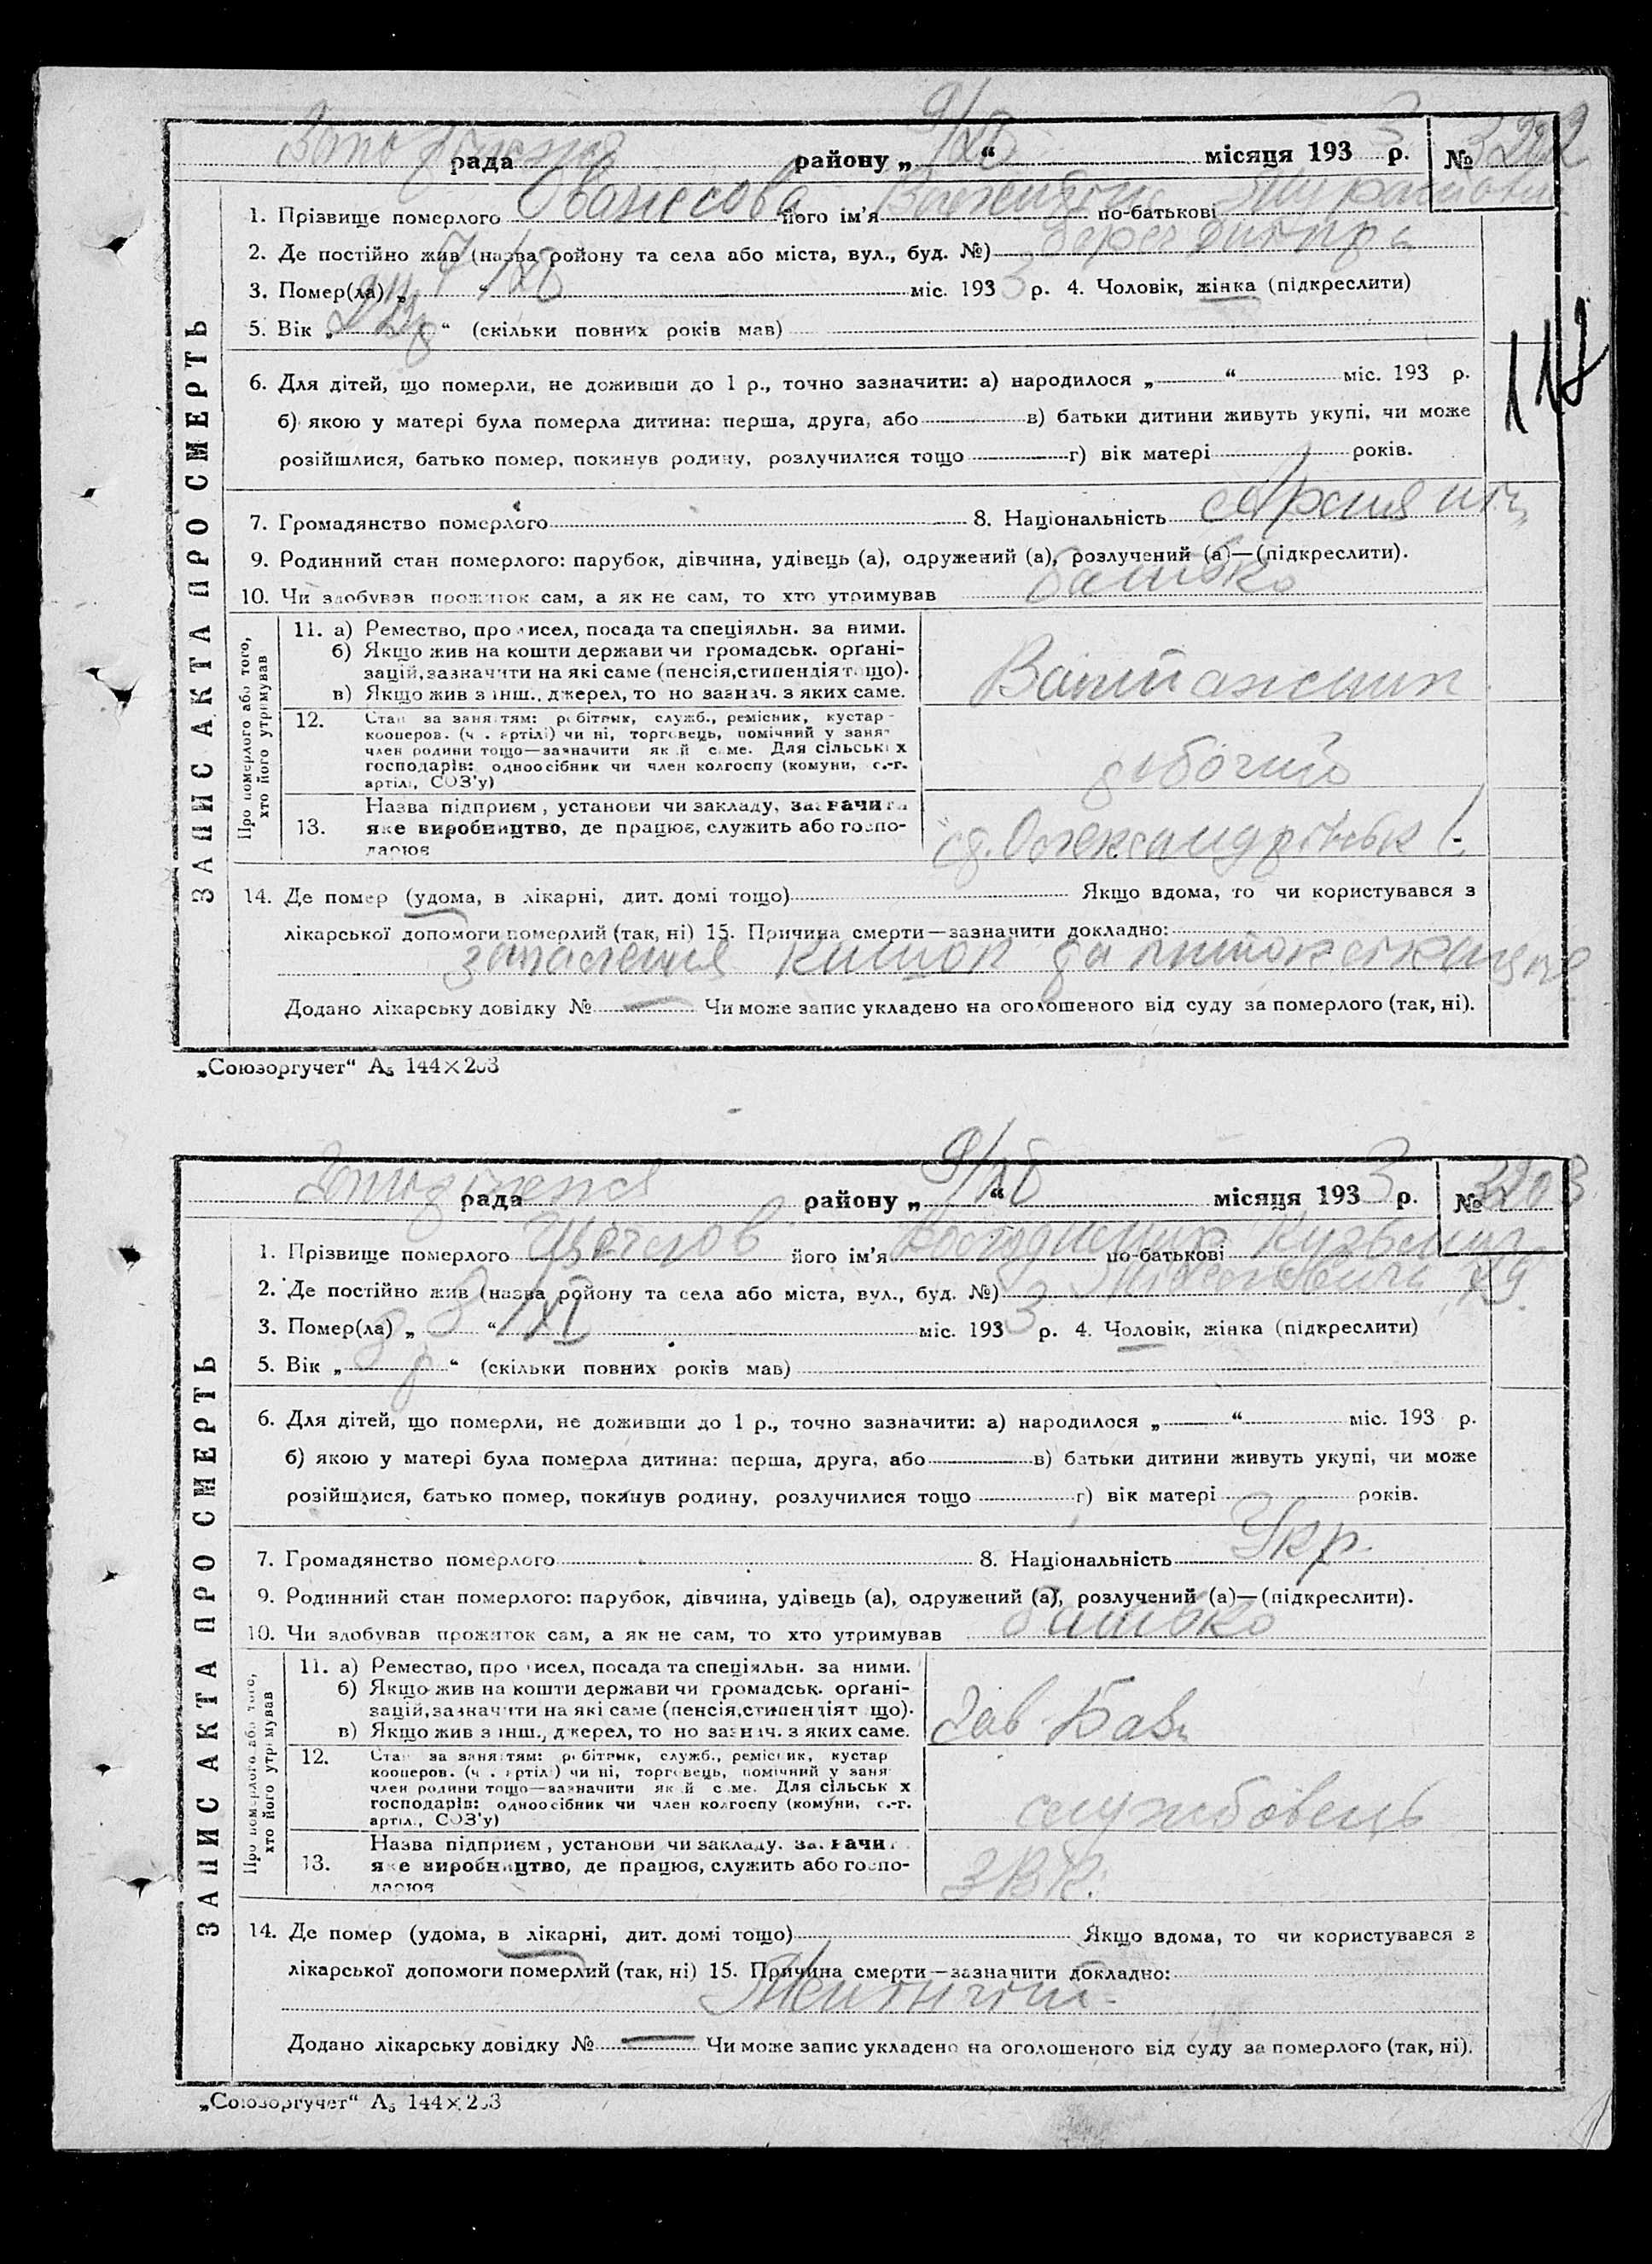 рада району „ 9/XII “ місяця 193 3 р. № 3202
ЗАПИС АКТА ПРО СМЕРТЬ
1. Прізвище померлого Ованесова його ім'я по-батькові
2. Де постійно жив (назва ройону та села або міста, вул., буд. №) берег Дніпра
3. Помер(ла) „ 7 “ міс. 193 3 р. 4. Чоловік, жінка (підкреслити)
5. Вік „ “ (скільки повних років мав)
6. Для дітей, що померли, не доживши до 1 р., точно зазначити: а) народилося „ “ міс. 193 р.
б) якою у матері була померла дитина: перша, друга, або в) батьки дитини живуть укупі, чи може
розійшлися, батько помер, покинув родину, розлучилися тощо г) вік матері років.
7. Громадянство померлого 8. Національність
9. Родинний стан померлого: парубок, дівчина, удівець (а), одружений (а), розлучений (а)—(підкреслити).
10. Чи здобував прожиток сам, а як не сам, то хто утримував батько
Про померлого або того, хто його утримував
11. а) Ремество, про исел, посада та спеціяльн. за ними.
б) Якщо жив на кошти держави чи громадськ. орґані-
зацій, зазначити на які саме (пенсія, стипендія тощо).
в) Якщо жив з інш., джерел, то но зазнач. з яких саме.
12. Стан за заняттям: робітник, служб., ремісник, кустар-
кооперов. (ч. артілі) чи ні, торговець, помічний у заня-
член родини тощо—зазначити який саме. Для сільських
господарів: одноосібник чи член колгоспу (комуни, с.-г.
артілі, СОЗ'у)
робочий
Назва підприєм, установи чи закладу, зазначити
13. яке виробництво, де працює, служить або госпо-
дарює
14. Де помер (удома, в лікарні, дит. домі тощо) Якщо вдома, то чи користувався з
лікарської допомоги померлий (так, ні) 15. Причина смерти—зазначити докладно:
запалення кишок
Додано лікарську довідку № — Чи може запис укладено на оголошеного від суду за померлого (так, ні).
„Союзоргучет“ А₅ 144×203
112
рада району „ 9/XII “ місяця 193 3 р. № 3203
ЗАПИС АКТА ПРО СМЕРТЬ
1. Прізвище померлого його ім'я Володимир по-батькові
2. Де постійно жив (назва ройону та села або міста, вул., буд. №)
3. Помер(ла) „ 8 “ міс. 193 3 р. 4. Чоловік, жінка (підкреслити)
5. Вік „ 8 р “ (скільки повних років мав)
6. Для дітей, що померли, не доживши до 1 р., точно зазначити: а) народилося „ “ міс. 193 р.
б) якою у матері була померла дитина: перша, друга, або в) батьки дитини живуть укупі, чи може
розійшлися, батько помер, покинув родину, розлучилися тощо г) вік матері років.
7. Громадянство померлого 8. Національність Укр.
9. Родинний стан померлого: парубок, дівчина, удівець (а), одружений (а), розлучений (а)—(підкреслити).
10. Чи здобував прожиток сам, а як не сам, то хто утримував батько
Про померлого або того, хто його утримував
11. а) Ремество, про исел, посада та спеціяльн. за ними.
б) Якщо жив на кошти держави чи громадськ. орґані-
зацій, зазначити на які саме (пенсія, стипендія т що).
в) Якщо жив з інш., джерел, то но зазнач. з яких саме.
Зав. Бази
12. Стан за заняттям: робітник, служб., ремісник, кустар
кооперов. (ч. артілі) чи ні, торговець, помічний у заня
член родини тощо—зазначити який саме. Для сільськ х
господарів: одноосібник чи член колгоспу (комуни, с.-г.
артіл., СОЗ'у)
службовець
Назва підприєм, установи чи закладу. зазначи
13. яке виробництво, де працює, служить або госпо-
дарює
ЗВК.
14. Де помер (удома, в лікарні, дит. домі тощо) Якщо вдома, то чи користувався з
лікарської допомоги померлий (так, ні) 15. Причина смерти—зазначити докладно:
Менінгіт
Додано лікарську довідку № — Чи може запис укладено на оголошеного від суду за померлого (так, ні).
„Союзоргучет“ А₅ 144×203